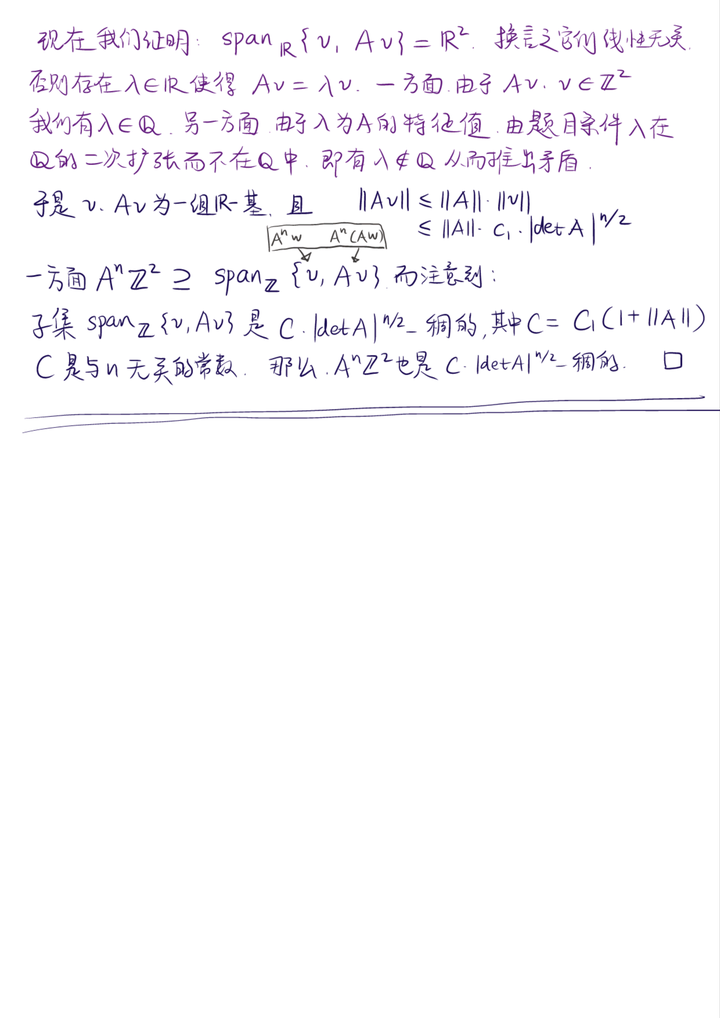 现在我们证明: span_ℝ{v, Av} = ℝ². 换言之它们线性无关.
否则存在 λ∈ℝ 使得 Av = λv. 一方面, 由于 Av, v ∈ ℤ²
我们有 λ∈ℚ. 另一方面, 由于 λ 为 A 的特征值, 由题目条件 λ 在
ℚ 的二次扩张而不在 ℚ 中, 即有 λ∉ℚ 从而推出矛盾.
于是 v, Av 为一组 ℝ-基, 且 ||Av|| ≤ ||A||·||v||
≤ ||A||·C₁·|det A|^{n/2}
Aⁿw Aⁿ(Aw)
一方面 Aⁿℤ² ⊇ span_ℤ{v, Av} 而注意到:
子集 span_ℤ{v, Av} 是 C·|detA|^{n/2}-稠的, 其中 C = C₁(1+||A||)
C 是与 n 无关的常数. 那么, Aⁿℤ² 也是 C·|detA|^{n/2}-稠的. □